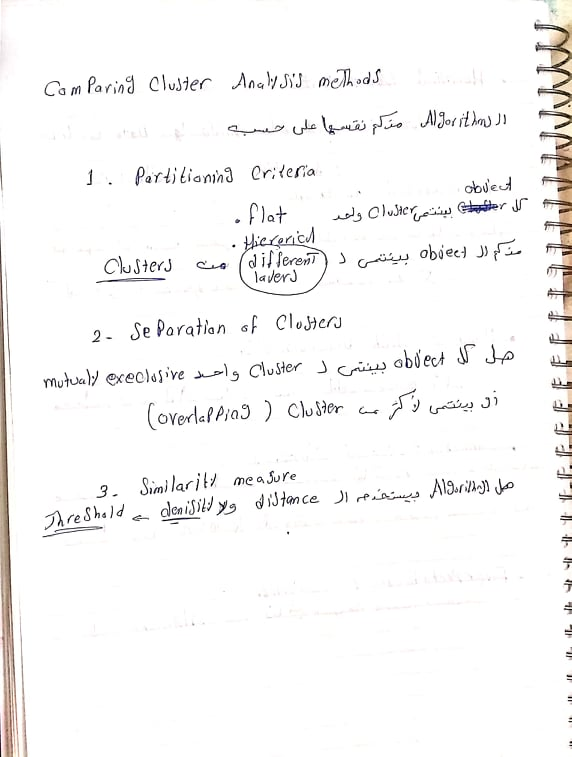 Comparing Cluster Analysis methods
الـ Algorithms ممكن نقسمها على حسب
1. Partitioning Criteria
• flat كل object بينتمى Cluster واحد
• Hierarical
ممكن الـ object بينتمى لـ different layers من Clusters
2- Separation of Clusters
هل كل object بينتمى لـ Cluster واحد mutualy execlosive
أو بينتمى لأكتر من Cluster (overlapping)
3- Similarity measure
هل الـ Algorithm بيستخدم الـ distance ولا denisity ← Threshold